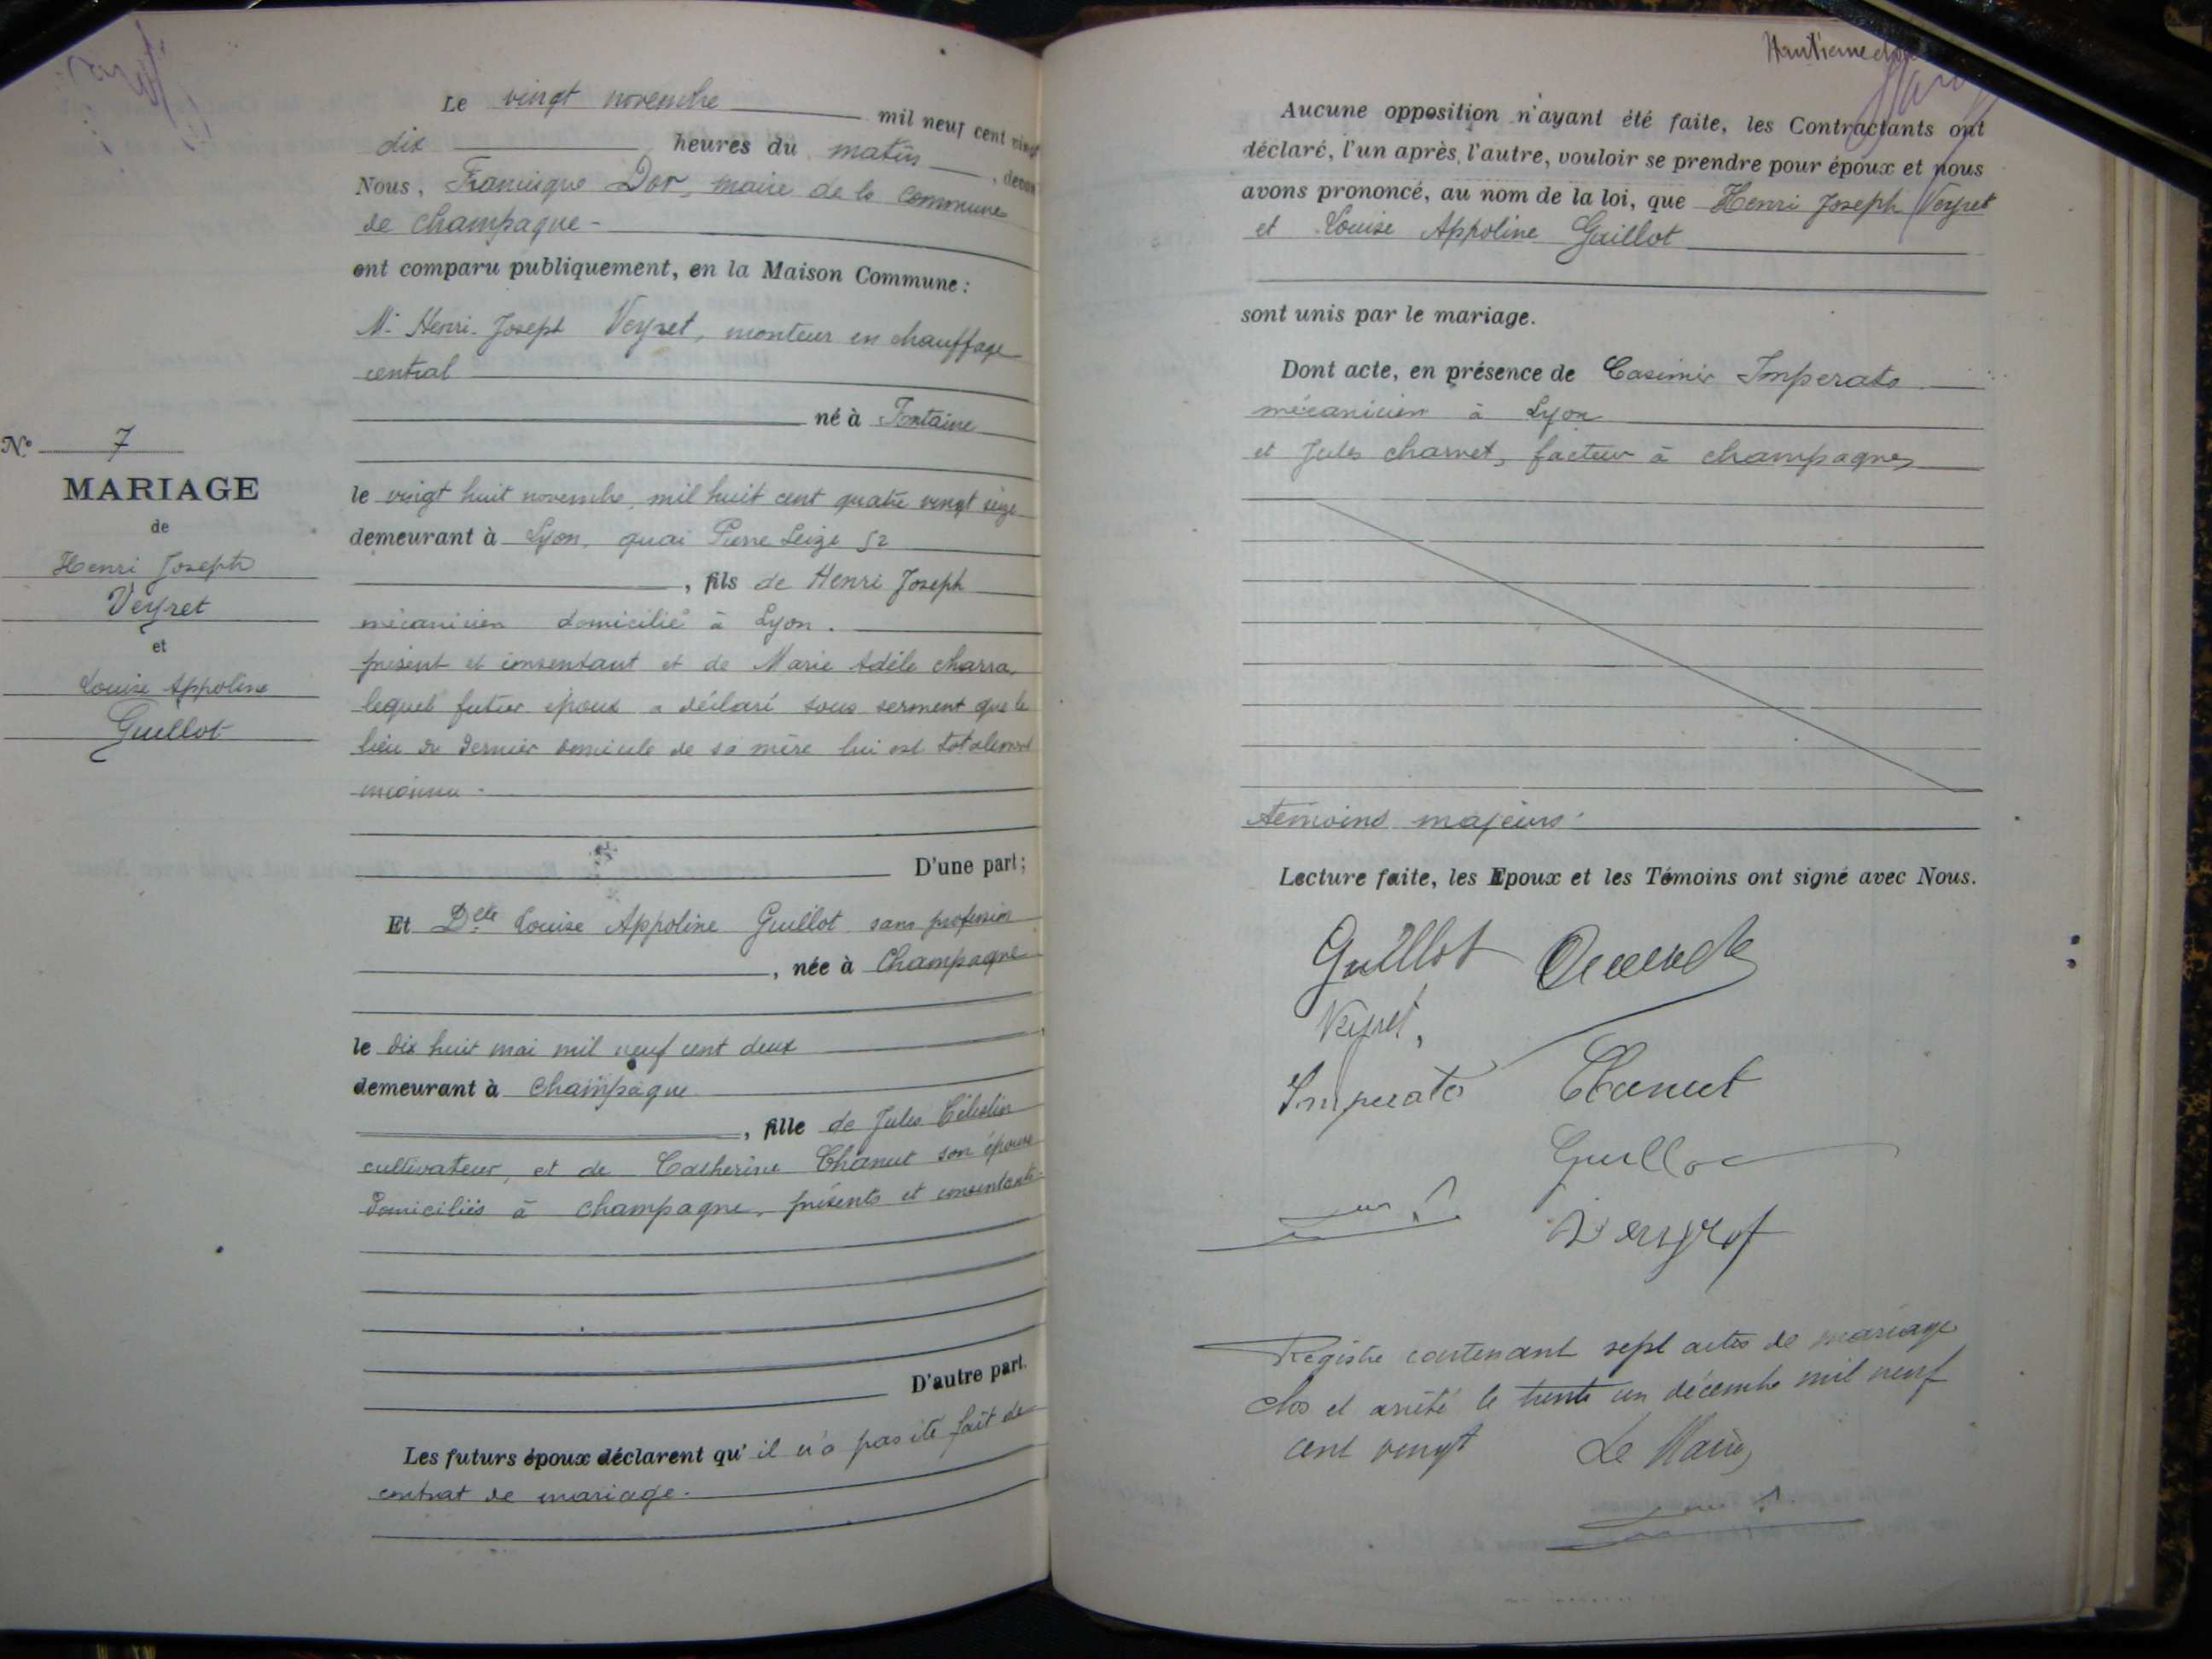 Le vingt novembre mil neuf cent vingt
dix heures du matin, devant
Nous, Francisque Dor, maire de la commune
de Champagne -
ont comparu publiquement, en la Maison Commune :
Mr Henri Joseph Veyret, monteur en chauffage
central
né à Fontaine
N° 7
MARIAGE
de
Henri Joseph
Veyret
et
Louise Appoline
Guillot
le vingt huit novembre, mil huit cent quatre vingt seize
demeurant à Lyon, quai Pierre Seize 52
, fils de Henri Joseph
mécanicien domicilié à Lyon.
présent et consentant et de Marie Adèle Charra,
lequel futur époux a déclaré sous serment que le
lieu du dernier domicile de sa mère lui est totalement
inconnu -
D'une part ;
Et Delle Louise Appoline Guillot sans profession
, née à Champagne
le dix huit mai mil neuf cent deux
demeurant à Champagne
, fille de Jules Célestin
cultivateur, et de Catherine Chanut son épouse
domiciliés à Champagne, présents et consentants -
D'autre part.
Les futurs époux déclarent qu' il n'a pas été fait de
contrat de mariage -
Aucune opposition n'ayant été faite, les Contractants ont
déclaré, l'un après l'autre, vouloir se prendre pour époux et nous
avons prononcé, au nom de la loi, que Henri Joseph Veyret
et Louise Appoline Guillot
sont unis par le mariage.
Dont acte, en présence de Casimir Imperato
mécanicien à Lyon
et Jules Charvet, facteur à Champagne,
témoins majeurs -
Lecture faite, les Epoux et les Témoins ont signé avec Nous.
Guillot
Veyret,
Imperato Chanut
Guillot
Veyret
Registre contenant sept actes de mariage
clos et arrêté le trente un décembre mil neuf
cent vingt Le Maire,